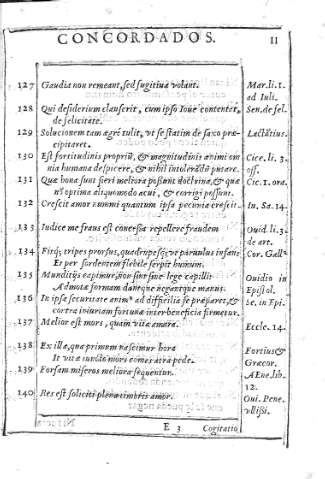 CONCORDADOS. 11
127 Gaudia non remeant, sed fugitiua volant. Mar.li.1.
ad Iuli.
128 Qui desiderium clauserit, cum ipso Ioue contentet, Sen.de fel.
de felicitate.
129 Solutionem tam ægrè tulit, vt se statim de saxo præ- Lactãtius.
cipitaret.
130 Est fortitudinis propriũ, & magnitudinis animi om Cice. li. 3.
nia humana despicere, & nihil intolerãdũ putare. off.
131 Quæ bona sunt fieri meliora possunt doctrina, & quæ Cic. 1. ora.
nõ optima aliquomodo acui, & corrigi possunt.
132 Crescit amor nummi quantum ipsa pecunia crescit. In. Sa. 14.
133 Iudice me fraus est concessa repellere fraudem Ouid. li. 3.
de art.
134 tripes prorsus, quadrupesq; vt paruulus infans Cor. Gall
Et per sordentem flebile serpit humum.
135 Munditijs capimur, non sint sine lege capilli Ouidio in
Admota formam dantque negantque manus. Epistol.
136 In ipsa securitate animº ad difficilia se præparet, & Se. in Epi.
contra iniuriam fortunæ inter beneficia firmetur.
137 Melior est mors, quam vita amara. Eccle. 14.
138 Ex illa, qua primum nascimur hora Fortius &
It vitæ iuncto mors comes atra pede. Gracor.
139 Forsam miseros meliora sequentur. AEne. lib.
12.
140 Res est soliciti plena timoris amor. Oui. Pene.
vllissi.
E 3 Cogitatio